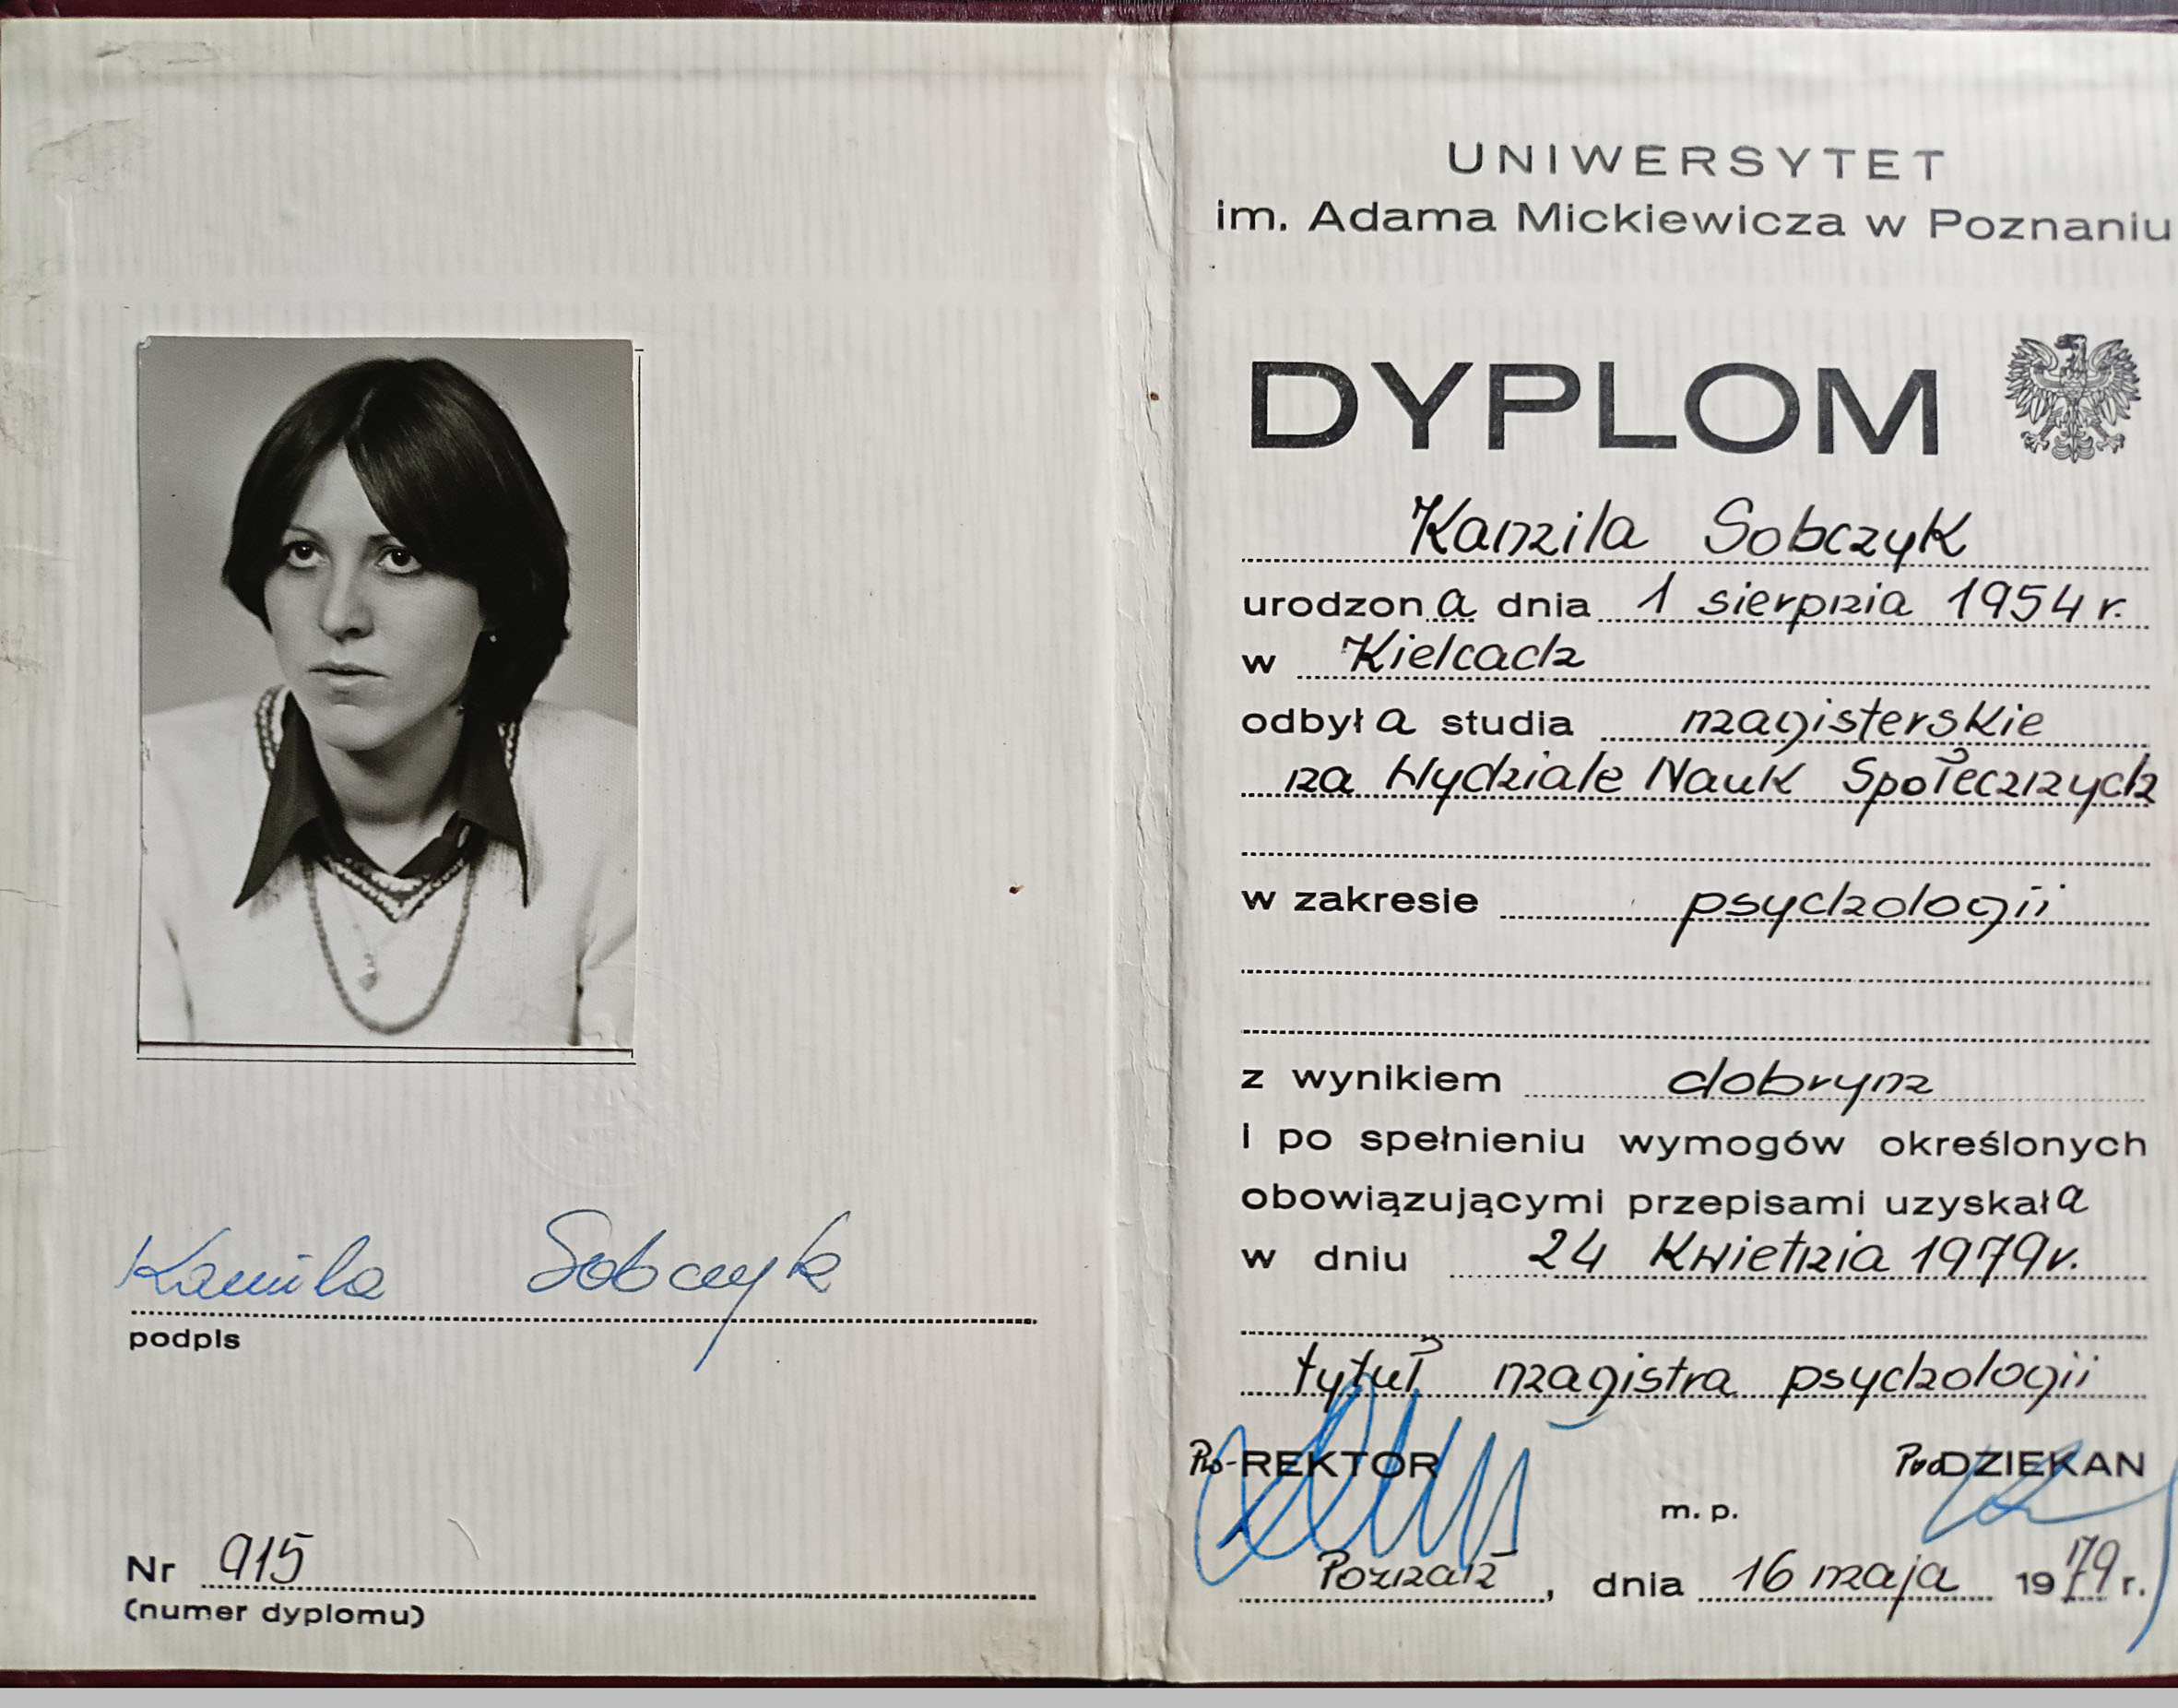 Kamila Sobczyk
podpis
Nr 915
(numer dyplomu)
UNIWERSYTET
im. Adama Mickiewicza w Poznaniu
DYPLOM
Kamila Sobczyk
urodzona dnia 1 sierpnia 1954 r.
w Kielcach
odbyła studia magisterskie
na Wydziale Nauk Społecznych
w zakresie psychologii
z wynikiem dobrym
i po spełnieniu wymogów określonych
obowiązującymi przepisami uzyskała
w dniu 24 kwietnia 1979 r.
tytuł magistra psychologii
Pro-REKTOR ProDZIEKAN
m. p.
Poznań, dnia 16 maja 1979 r.